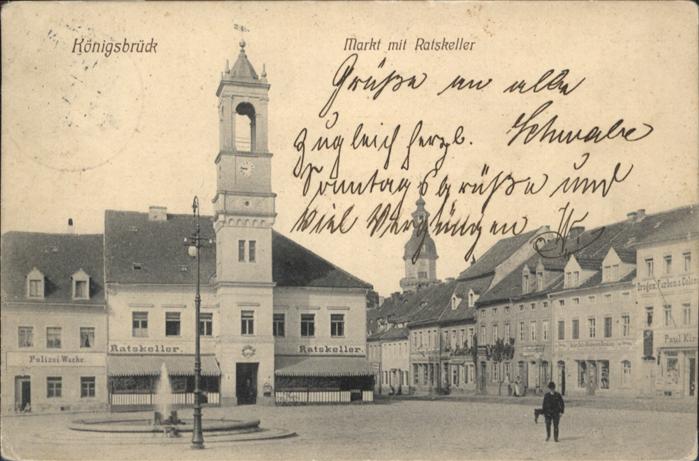 Königsbrück
Markt mit Ratskeller
Grüße an alle
Zugleich herzl. Schwabe
Sonntagsgrüße und
Viel Vergnügen
Polizei Wache.
Ratskeller.
Ratskeller.
Drogen, Farben
Paul